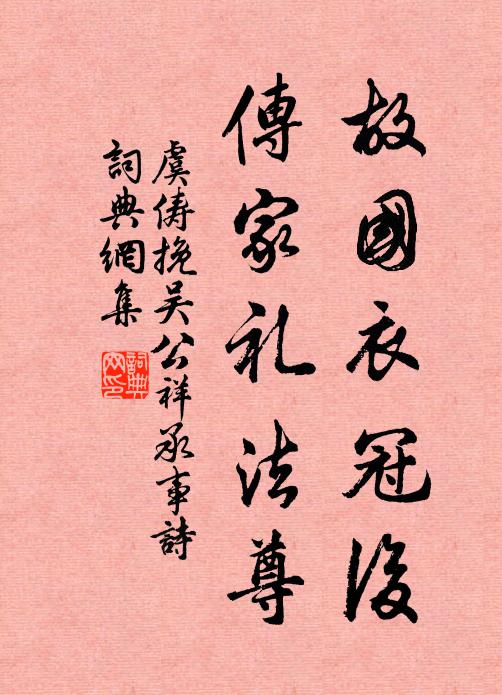 故國衣冠後
傳家礼法尊
虞俦挽吴公祥承事詩
詞典網集
詞典網印